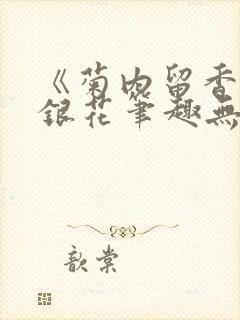 《菊内留香
銀花筆趣無
歆棠